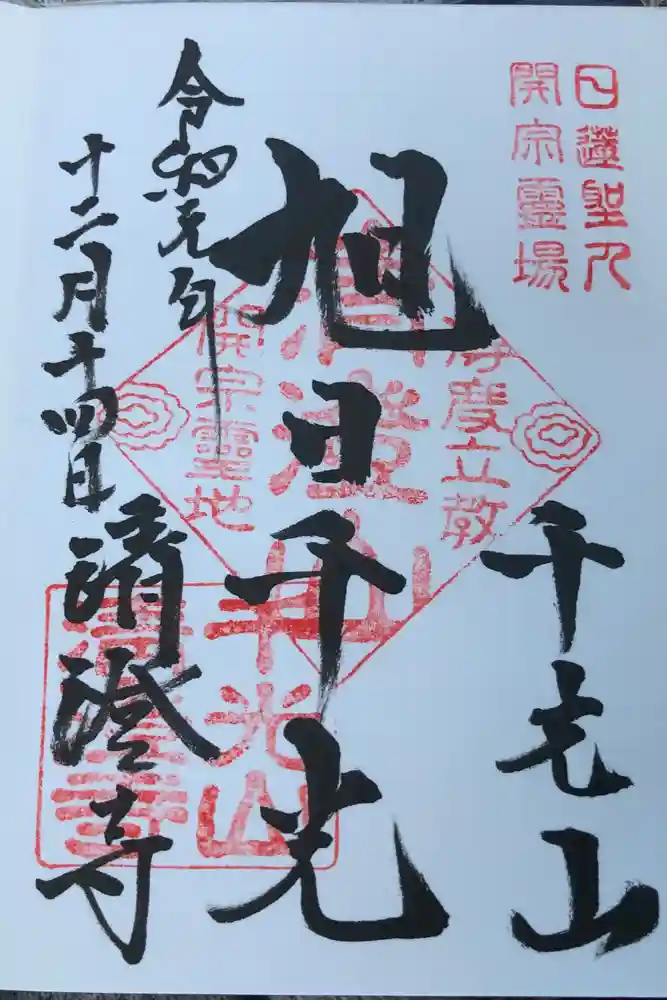 日蓮聖人
開宗霊場
千光山
旭日千光
清澄山
虚空立教
開宗霊地
令和元年
十二月十四日
清澄寺
千光山
清澄寺